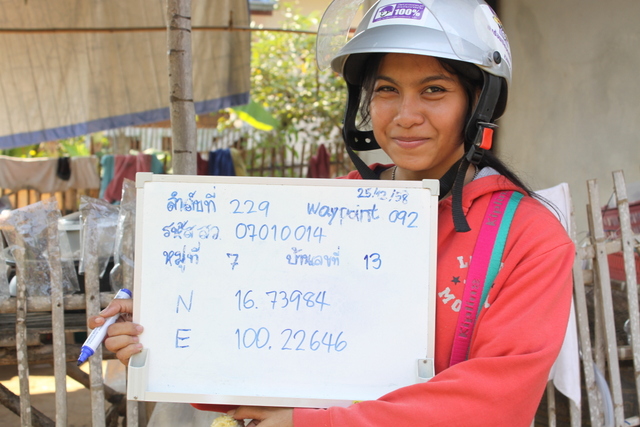 100%
25/12/58
ลำดับที่ 229 waypoint 092
รหัส สว. 07010014
หมู่ที่ 7 บ้านเลขที่ 13
N 16.73984
E 100.22646